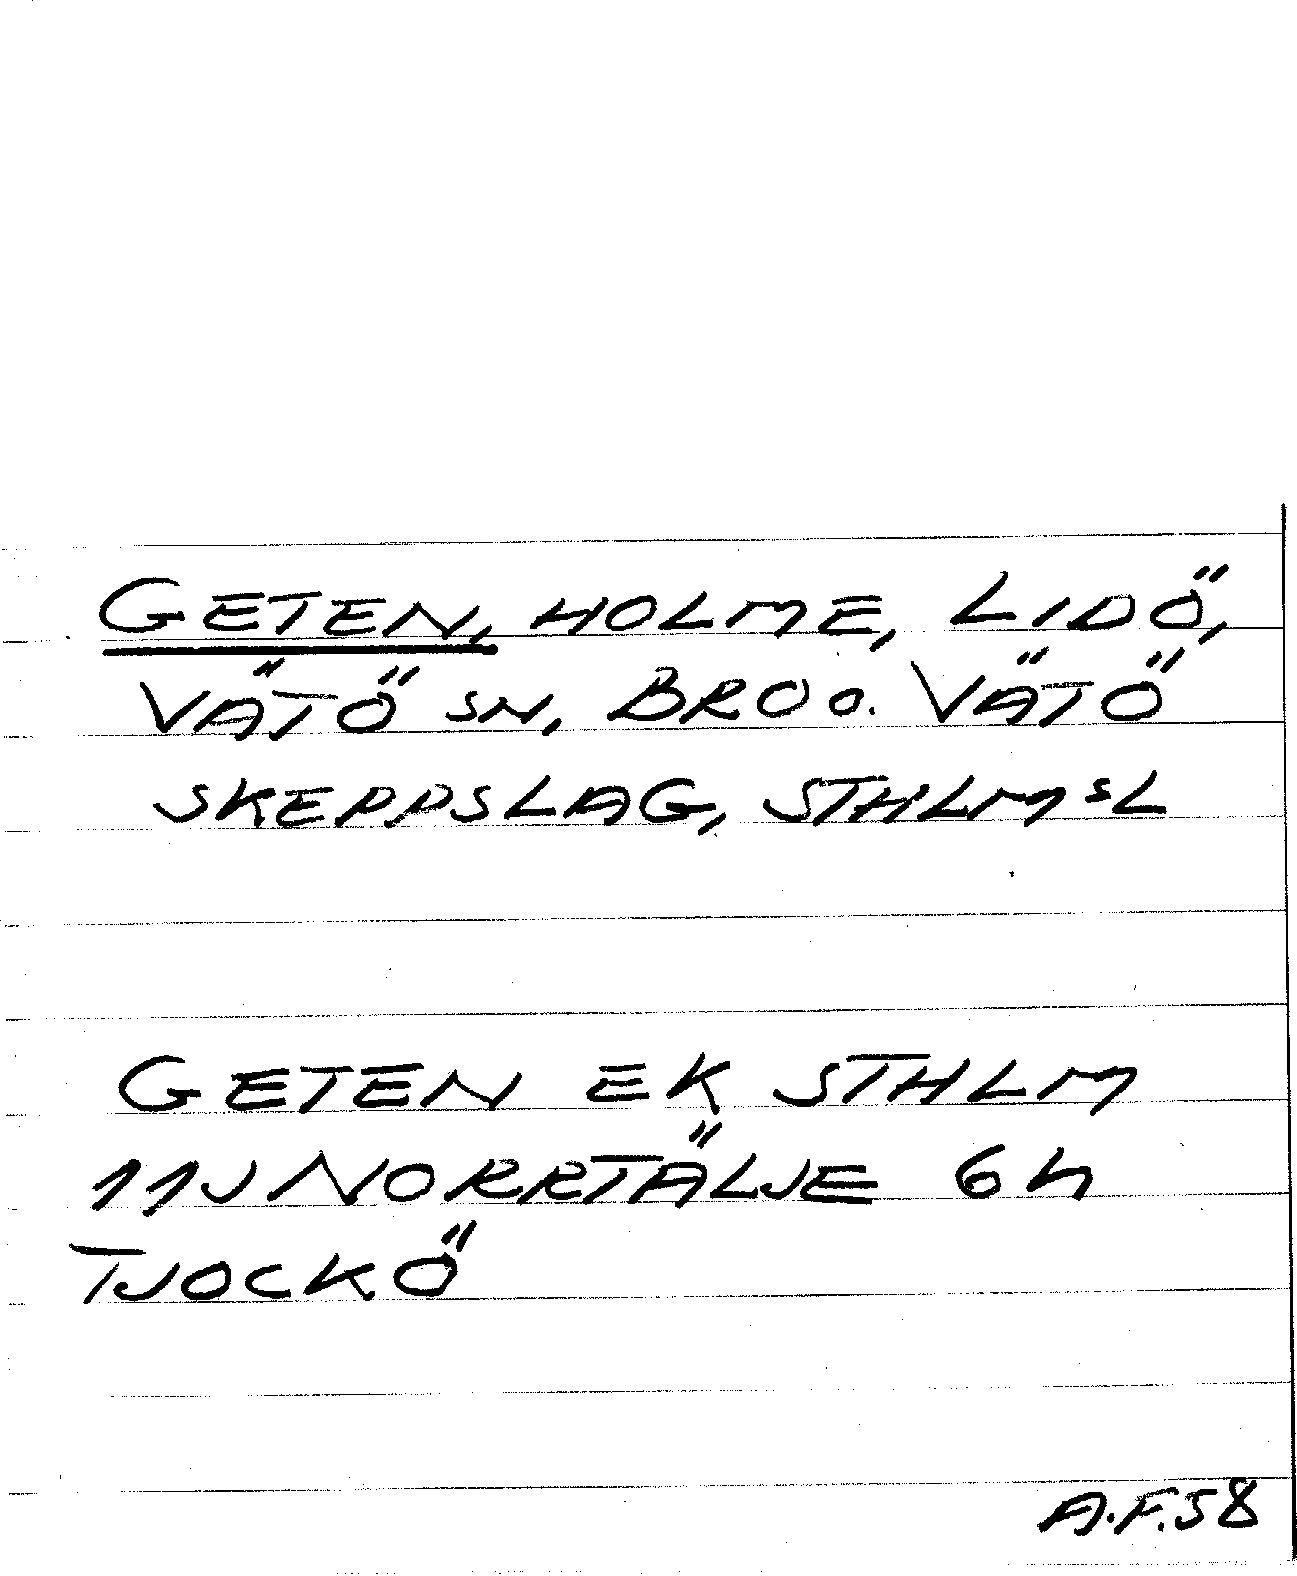 GETEN, HOLME, LIDÖ,
VÄTÖ SN, BRO O. VÄTÖ
SKEPPSLAG, STHLMSL
GETEN EK STHLM
11J NORRTÄLJE 6h
TJOCKÖ
A.F.58